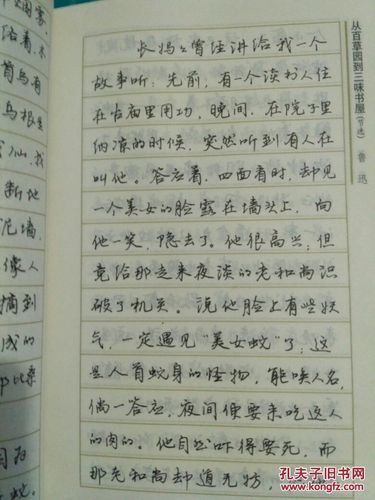 站着，木
首乌有
乌根是
仙，我
断地
泥墙，
像人
摘到
成的
长妈々曾经讲给我一个
故事听：先前，有一个读书人住
在古庙里用功，晚间，在院子里
纳凉的时候，突然听到有人在
叫他。答应着，四面看时，却见
一个美女的脸露在墙头上，向
他一笑，隐去了。他很高兴；但
竟给那走来夜谈的老和尚识
破了机关。说他脸上有些妖
气，一定遇见“美女蛇”了；这
是人首蛇身的怪物，能唤人名，
倘一答应，夜间便要来吃这人
的肉的。他自然吓得要死，而
那老和尚却道无妨，
从百草园到三味书屋(节选) 鲁迅
孔夫子旧书网
www.kongfz.com